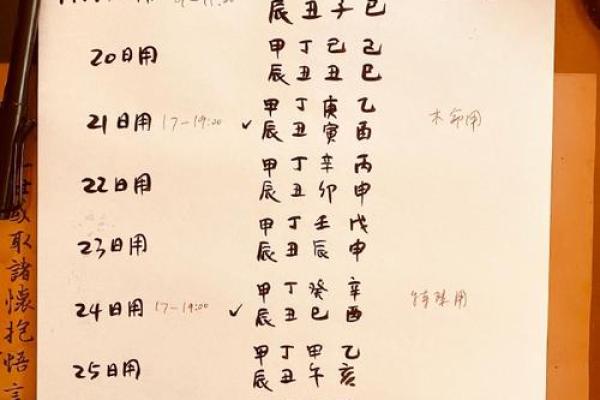 辰 丑 子 巳
20日用
甲 丁 己 己
辰 丑 丑 巳
21日用 17-19:00 ✓
甲 丁 庚 乙
辰 丑 寅 酉
木命用
22日用
甲 丁 辛 丙
辰 丑 卯 申
23日用
甲 丁 壬 戊
辰 丑 辰 申
24日用 17-19:00 ✓
甲 丁 癸 辛
辰 丑 巳 酉
特殊用
25日用
甲 丁 甲 乙
辰 丑 午 亥
或取諸懷抱悟言